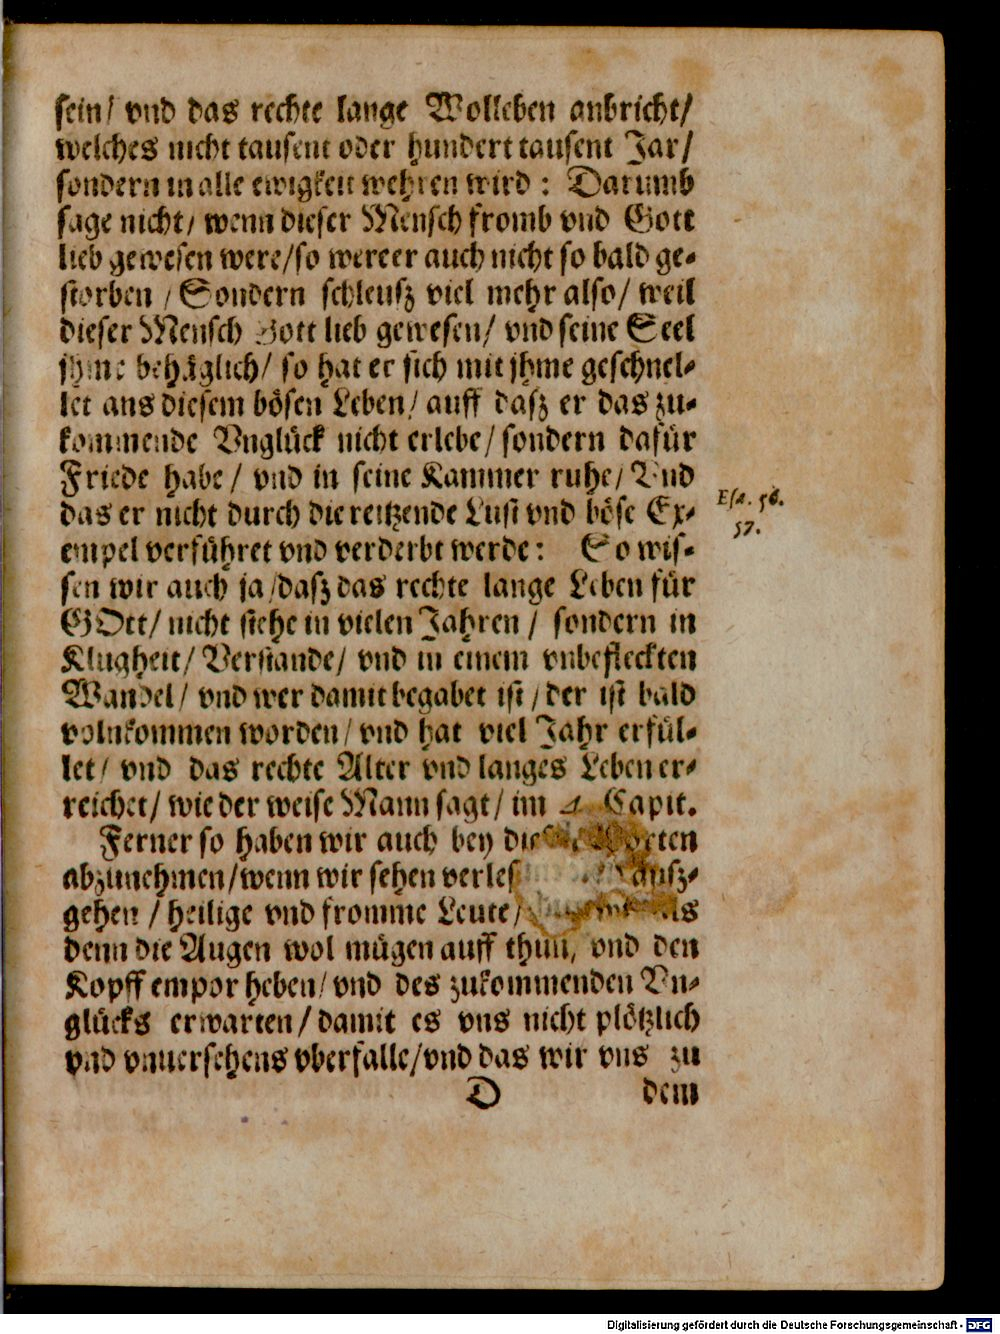 sein/ vnd das rechte lange Wolleben anbricht/
welches nicht tausent oder hundert tausent Jar/
sondern in alle ewigkeit wehren wird: Darumb
sage nicht/ wenn dieser Mensch fromb vnd Gott
lieb gewesen were/ so were er auch nicht so bald ge-
storben/ Sondern schleusz viel mehr also/ weil
dieser Mensch Gott lieb gewesen/ vnd seine Seel
jhme behäglich/ so hat er sich mit jhme geschnel-
let aus diesem bösen Leben/ auff dasz er das zu-
kommende Vnglück nicht erlebe/ sondern dafür
Friede habe/ vnd in seine Kammer ruhe/ Vnd
das er nicht durch die reitzende Lust vnd böse Ex-
empel verführet vnd verderbt werde: So wis-
sen wir auch ja/ dasz das rechte lange Leben für
GOtt/ nicht stehe in vielen Jahren/ sondern in
Klugheit/ Verstande/ vnd in einem vnbefleckten
Wandel/ vnd wer damit begabet ist/ der ist bald
volnkommen worden/ vnd hat viel Jahr erfül-
let/ vnd das rechte Alter vnd langes Leben er-
reichet/ wie der weise Mann sagt/ im 4. Capit.
Esa. 56.
57.
Ferner so haben wir auch bey Worten
abzunehmen/ wenn wir sehen
gehen/ heilige vnd fromme Leute/
denn die Augen wol mügen auff thun, vnd den
Kopff empor heben/ vnd des zukommenden Vn-
glücks erwarten/ damit es vns nicht plötzlich
vnd vnuersehens vberfalle/ vnd das wir vns zu
D dem
Digitalisierung gefördert durch die Deutsche Forschungsgemeinschaft - DFG